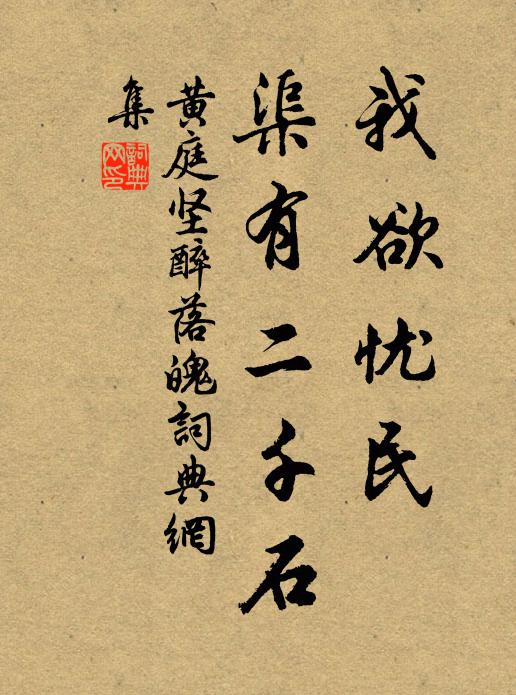 我欲忧民
渠有二千石
黄庭坚醉落魄詞典網
集
詞典網印